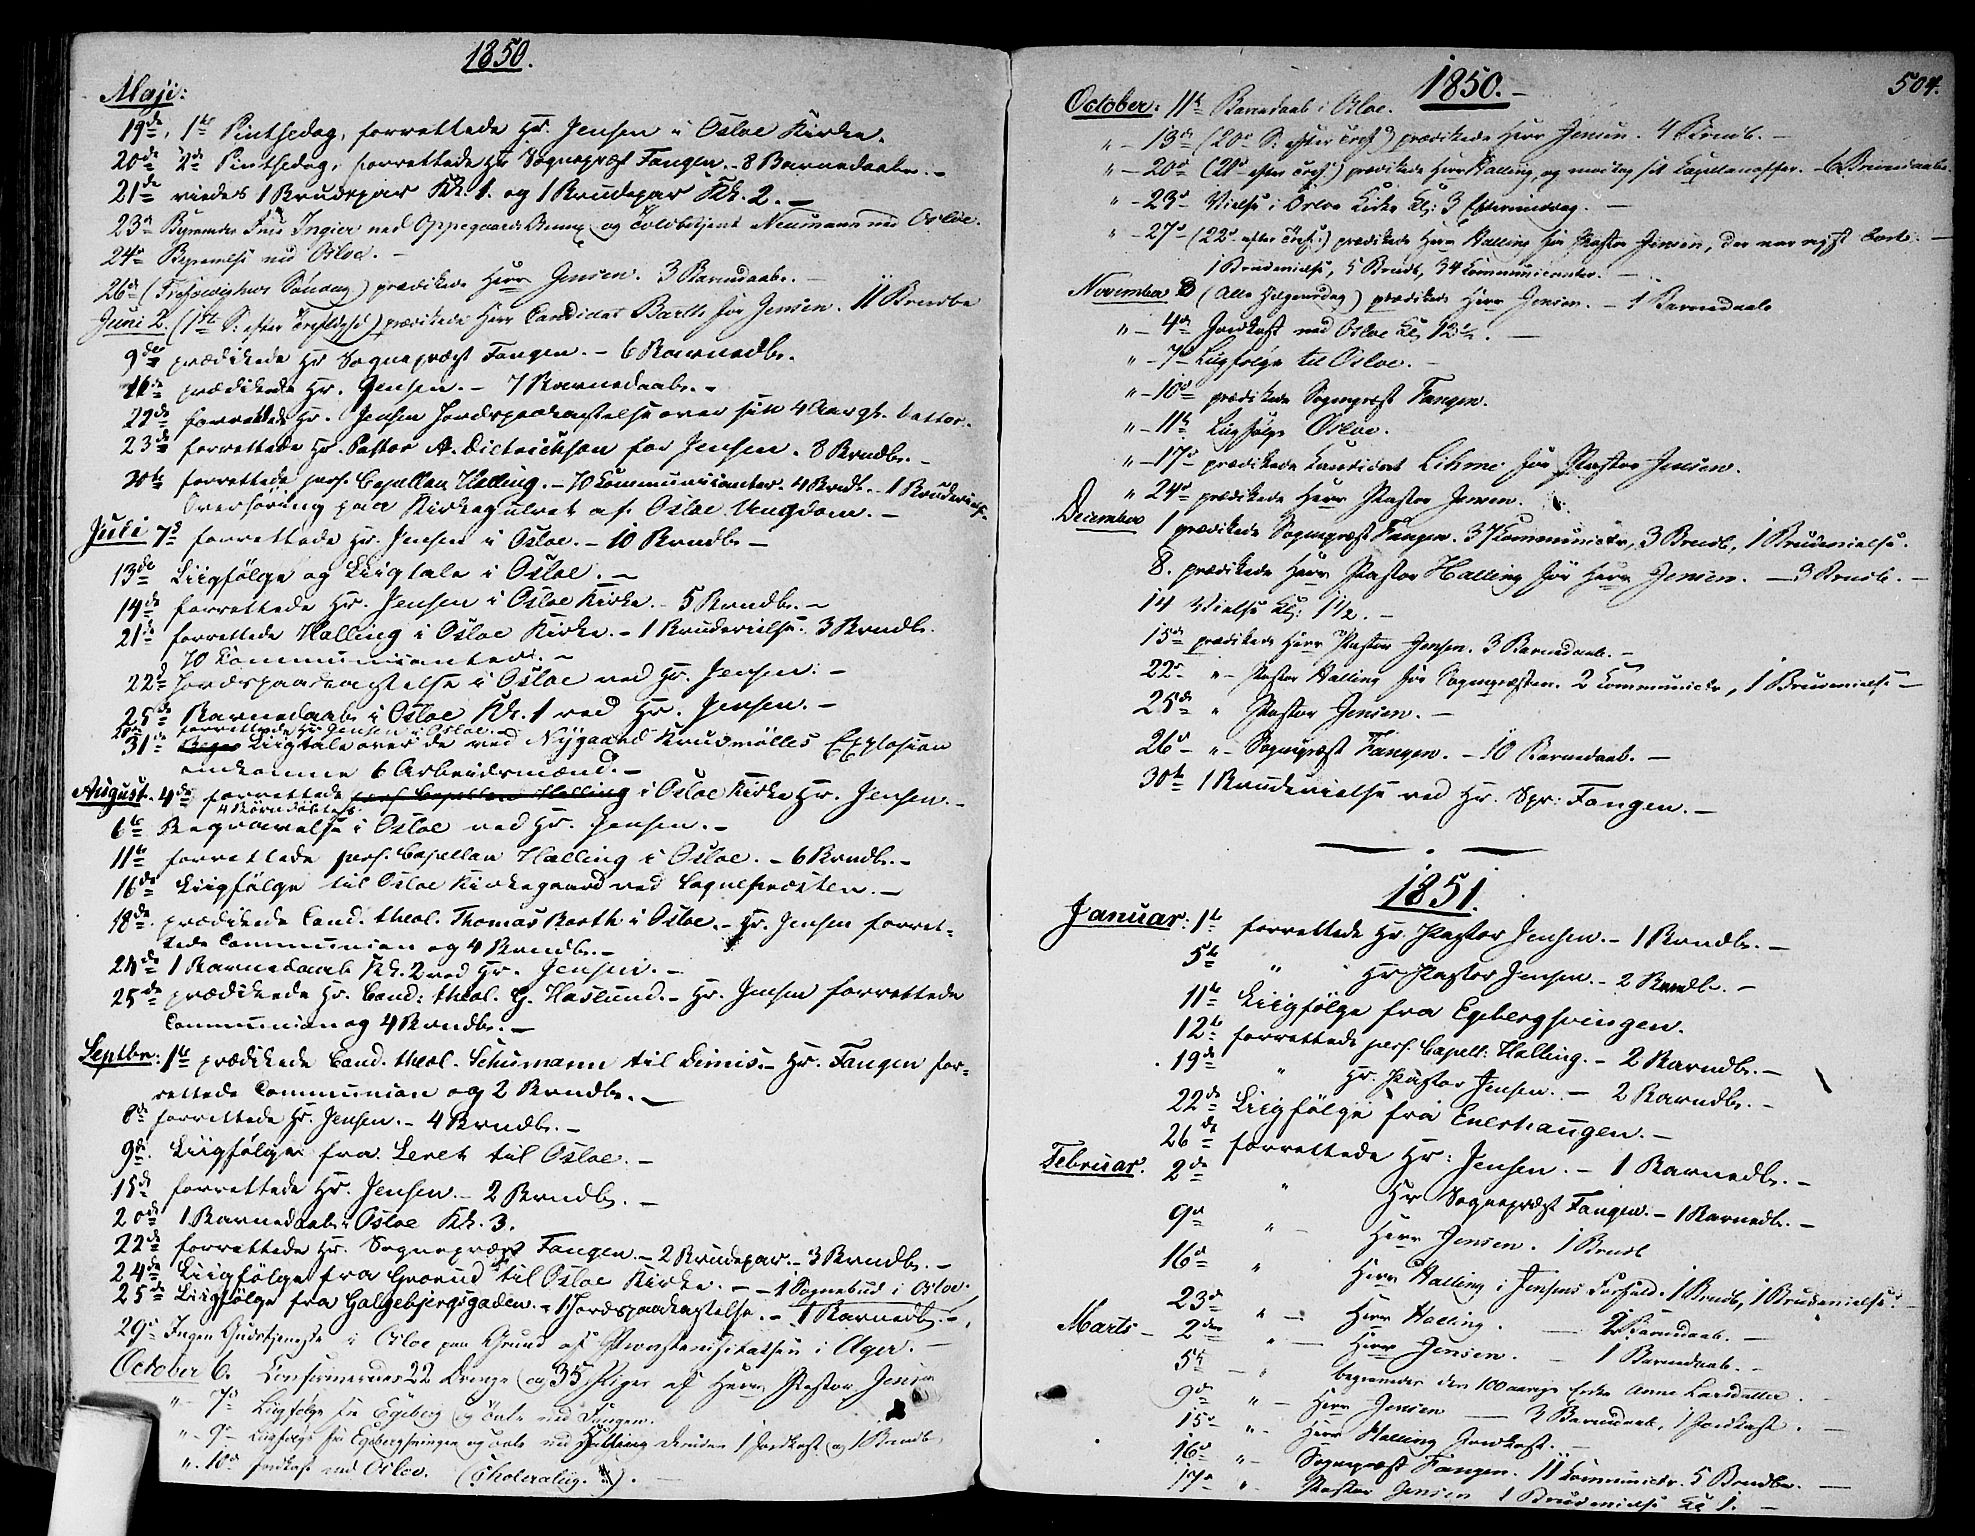 1850.
Maji:
19de, 1te Pintsedag, forrettede Hr. Jensen i Osloe Kirke.
20de 2de Pintsedag, forrettede Hr Sognepræst Fangen. - 8 Barnedaabe. -
21de viedes 1 Brudepar Kl. 1. og 1 Brudepar Kl. 2. -
23d Begravedes Ingier ved Oppegaards og Toldbetjent Neumann ved Osloe.
24de Begravelse ved Osloe. -
26de (Trefoldigheds Søndag) prædikede Herr Jensen. 3 Barnedaabe. -
Juni 2. (1ste S: efter Trefoldighed) prædikede Herr Candidat Barth for Jensen. 11 Brndbe
9de prædikede Hr Sognepræst Fangen. - 6 Barnedb.
16de prædikede Hr. Jensen. - 7 Barnedaabe. -
22de forrettede Hr. Jensen Jordspaakastelse over sin 4 Aar gl. Datter.
23de forrettede Hr. Pastor A. Dietrichson for Jensen. 8 Brndb. -
30te forrettede pers. Capellan Halling. - 70 Kommunicanter. 4 Brndb. - 1 Brudevielse.
Overhøring paa Kirkegulvet af Osloe Ungdom. -
Juli 7de forrettede Hr. Jensen i Osloe. - 10 Brndb. -
13de Liigfølge og Liigtale i Osloe. -
14de forrettede Hr. Jensen i Osloe Kirke. - 5 Brndb. -
21de forrettede Halling i Osloe Kirke. - 1 Brudevielse. 3 Brndb.
70 Communicanter. -
22d Jordspaakastelse i Osloe ved Hr. Jensen. -
25de Barnedaab i Osloe Kl. 1 ved Hr. Jensen. -
28de forrettede Hr. Jensen i Osloe. -
31te Liigtale over de ved Nygaard Krudmølles Explosion
omkomne 6 Arbeidsmænd. -
August. 4de forrettede pers. Capellan Halling i Osloe Kirke Hr. Jensen. -
4 Børn døbtes.
6te Begravelse i Osloe ved Hr. Jensen. -
11te forrettede pers. Capellan Halling i Osloe. - 6 Brndb. -
16de Liigfølge til Osloe Kirkegaard ved Sognepræsten. -
18de prædikede Cand. theol. Thomas Barth i Osloe. - Hr. Jensen forret-
tede Communion og 4 Brndb. -
24de 1 Barnedaab Kl. 2 ved Hr. Jensen. -
25de prædikede Hr. Cand: theol. G. Haslund. - Hr. Jensen forrettede
Communion og 4 Brndb. -
Septbr: 1te prædikede Cand. theol. Schumann til Dimis. - Hr. Fangen for-
rettede Communion og 2 Brndb. -
8de forrettede Hr. Jensen. - 4 Brndb. -
9de Liigfølge fra Leret til Osloe. -
15de forrettede Hr. Jensen. - 2 Brndb. -
20de 1 Barnedaab i Osloe Kl. 3.
22de forrettede Hr. Sognepræst Fangen. - 2 Brudepar. - 3 Brndb. -
24de Liigfølge fra Grorud til Osloe Kirke. - 1 Sognebud i Osloe.
25de Liigfølge fra Galgebjergsgaden. - 1 Jordspaakastelse. - 1 Barnedb. -
29de Ingen Gudstjeneste i Osloe paa Grund af Provstevisitatsen i Ager. -
October 6. Confirmeredes 22 Drenge og 35 Piger af Herr Pastor Jensen
" - 7de Liigfølge fra Egeberg og Tale ved Fangen.
" - 9de Liigfølge fra Egebergsvingen og Tale ved Halling desuden 1 Jordkast og 1 Brndb
" - 10de Jordkast ved Osloe. (Choleralig. ).
1850. -
504.
October: 11te Barnedaab i Osloe.
" - 13de (20de S. efter Tref) prædikede Herr Jensen. 4 Brndb. -
" - 20de (21de efter Tref.) prædikede Herr Halling, og modtog sit Capellanoffer. - 6 Barnedaabe.
" - 23de Vielse i Osloe Kirke Kl: 3 Eftermiddag. -
" - 27de (22de efter Tref:) prædikede Herr Halling for Pastor Jensen, der var reist bort. -
1 Brudevielse, 5 Brndb, 34 Communicanter. -
November 3 (Alle Helgensdag) prædikede Herr Jensen. - 1 Barnedaab
" - 4de Jordkast ved Osloe Kl 12½. -
" - 7de Liigfølge til Osloe. -
" - 10de prædikede Sognepræst Fangen.
" - 11te Liigfølge Osloe.
" - 17de prædikede Candidat Lihme for Pastor Jensen.
" 24de prædikede Herr Pastor Jensen.
December 1 prædikede Sognepræst Fangen. 37 Communictr, 3 Brndb, 1 Brudevielse.
8. prædikede Herr Pastor Halling for Herr Jensen. - 3 Brndb. -
14 Vielse Kl: 1½. -
15de prædikede Herr Pastor Jensen. 3 Barnedaab. -
22de " - Pastor Halling for Sognepræsten. 2 Communictr, 1 Brudevielse -
25de " Pastor Jensen. -
26de - " - Sognepræst Fangen. - 10 Barnedaab. -
30te 1 Brudevielse ved Hr. Spr: Fangen. -
1851.
Januar: 1te forrettede Hr. Pastor Jensen. - 1 Brndb. -
5te " Hr. Pastor Jensen. - 2 Brndb. -
11te Liigfølge fra Egebergsvingen.
12te forrettede pers. Capell: Halling. - 2 Barndb. -
19de " Hr. Pastor Jensen. - 2 Barndb. -
22de Liigfølge fra Enerhaugen. -
26de forrettede Hr: Jensen. - 1 Barnedb. -
Februar. 2de " Hr Sognepræst Fangen. - 1 Barnedb. -
9de " - Herr Jensen. 1 Brndb
16de " Herr Halling i Jensens Forfald. 1 Brndb, 1 Brudevielse.
23de " - Herr Halling. - 2 Barnedaab. -
Marts - 2den " - Herr Jensen. - 1 Barnedaab. -
5te - " begravedes den 100aarige Enke Anne Larsdatter. -
9de " - Herr Jensen - 3 Barnedaab, 1 Jordkast. -
15de " - Herr Halling Jordkast. -
16de " Sognepræst Fangen. 11 Communictr. 5 Brndb. -
17de " - Pastor Jensen 1 Brudevielse Kl 1. -